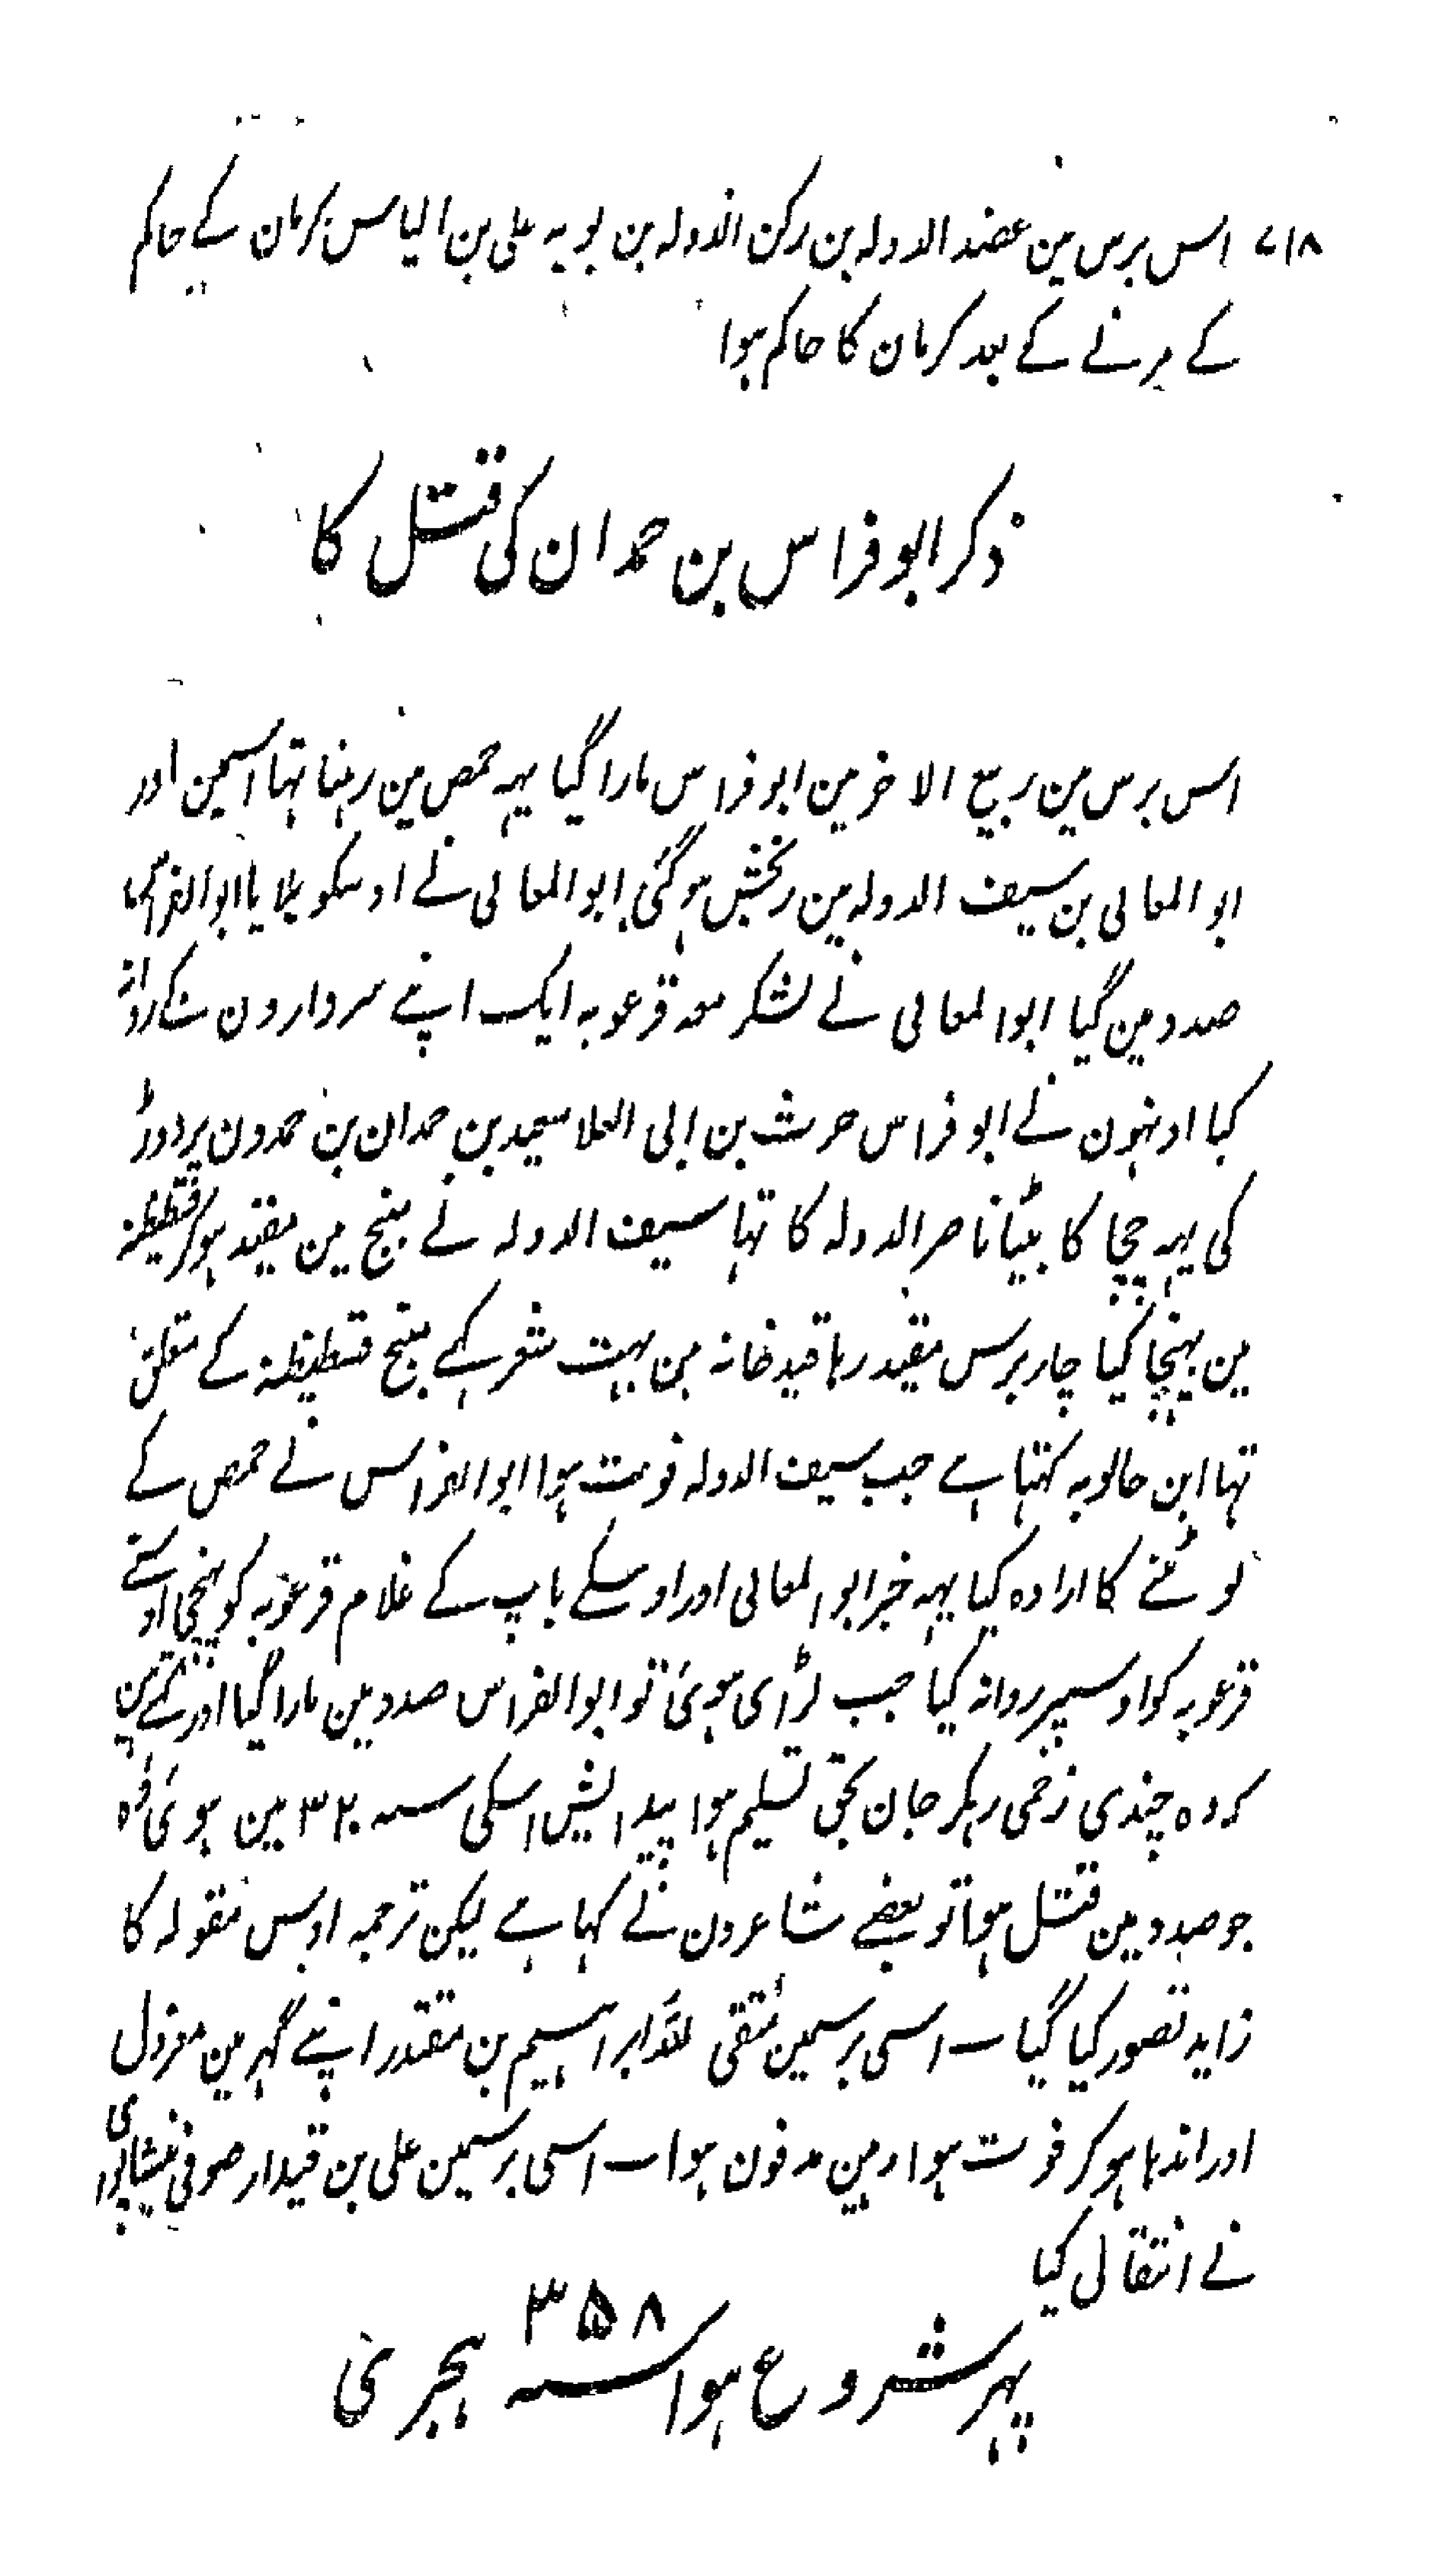 ۷۱۸ اس برس مین عضد الدولہ بن رکن الدولہ بن بویہ علی بن الیاس کرمان کے حاکم
کے مرنے کے بعد کرمان کا حاکم ہوا
ذکر ابو فراس بن حمدان کی قتل کا
اس برس مین ربیع الاخر مین ابو فراس مارا گیا یہہ حمص مین رہتا تہا اسمین اور
ابو المعالی بن سیف الدولہ مین رنجش ہو گئی ابو المعالی نے اوسکو بلایا ابو الفراس
صدد مین گیا ابو المعالی نے لشکر معہ قرعوبہ ایک اپنے سردارون کے روانہ
کیا اونہون نے ابو فراس حرث بن ابی العلا سعید بن حمدان بن حمدون پر دوڑ
کی یہہ چچا کا بیٹا ناصر الدولہ کا تہا سیف الدولہ نے منبج مین مقید ہو کر قسطنطنیہ
مین پہنچا کیا چار برس مقید رہا قید خانہ مین بہت شعر کہے منبج قسطنطنیہ کے متعلق
تہا ابن خالویہ کہتا ہے جب سیف الدولہ فوت ہوا ابو الفراس نے حمص کے
لوٹنے کا ارادہ کیا یہہ خبر ابو المعالی اور اوسکے باپ کے غلام قرعوبہ کو پہنچی اوسنے
قرعوبہ کو اوسپر روانہ کیا جب لڑائی ہوئی تو ابو الفراس صدد مین مارا گیا اور
کردہ چندی زخمی رہکر جان بحق تسلیم ہوا پیدایش اسکی سنہ ۳۲۰ مین ہوئی وہ
جو صدد مین قتل ہوا تو بعضے شاعرون نے کہا ہے لیکن ترجمہ اوس مقولہ کا
زاید تصور کیا گیا ـ اسی برسمین متقی للہ ابراہیم بن مقتدر اپنے گہر مین معزول
اور اندہا ہو کر فوت ہوا وہین مدفون ہوا ـ اسی برسمین علی بن قیدار صوفی نیشاپوری
نے انتقال کیا
پہر شروع ہوا سنہ ۳۵۸ ہجری